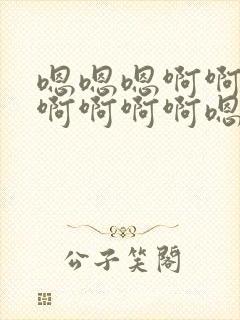 嗯嗯嗯啊啊
啊啊啊啊嗯
公子笑閣